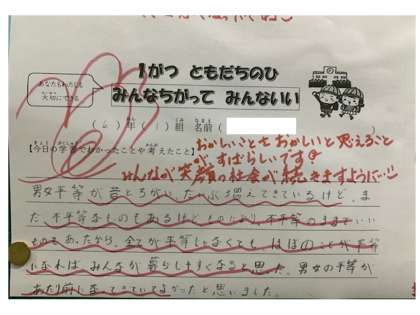 あなたもわたしも
大切にできる
1がつ ともだちのひ
みんなちがって みんないい
(6)年(1)組 名前(
【今日の学習でわかったことや考えたこと】
おかしいことをおかしいと思えること
が、すばらしいです
みんなが笑顔の社会が続きますように…!!
男女平等が昔とちがい、たいぶ増えてきているけど、ま
だ、不平等なものもあるけど、ものにより、不平等のままでいい
ものもあったから、全てが平等じゃなくても、ほぼのことが平等
になればみんなが暮らしやすくなると思った。男女の平等が
あたり前になってきていてよかったと思いました。